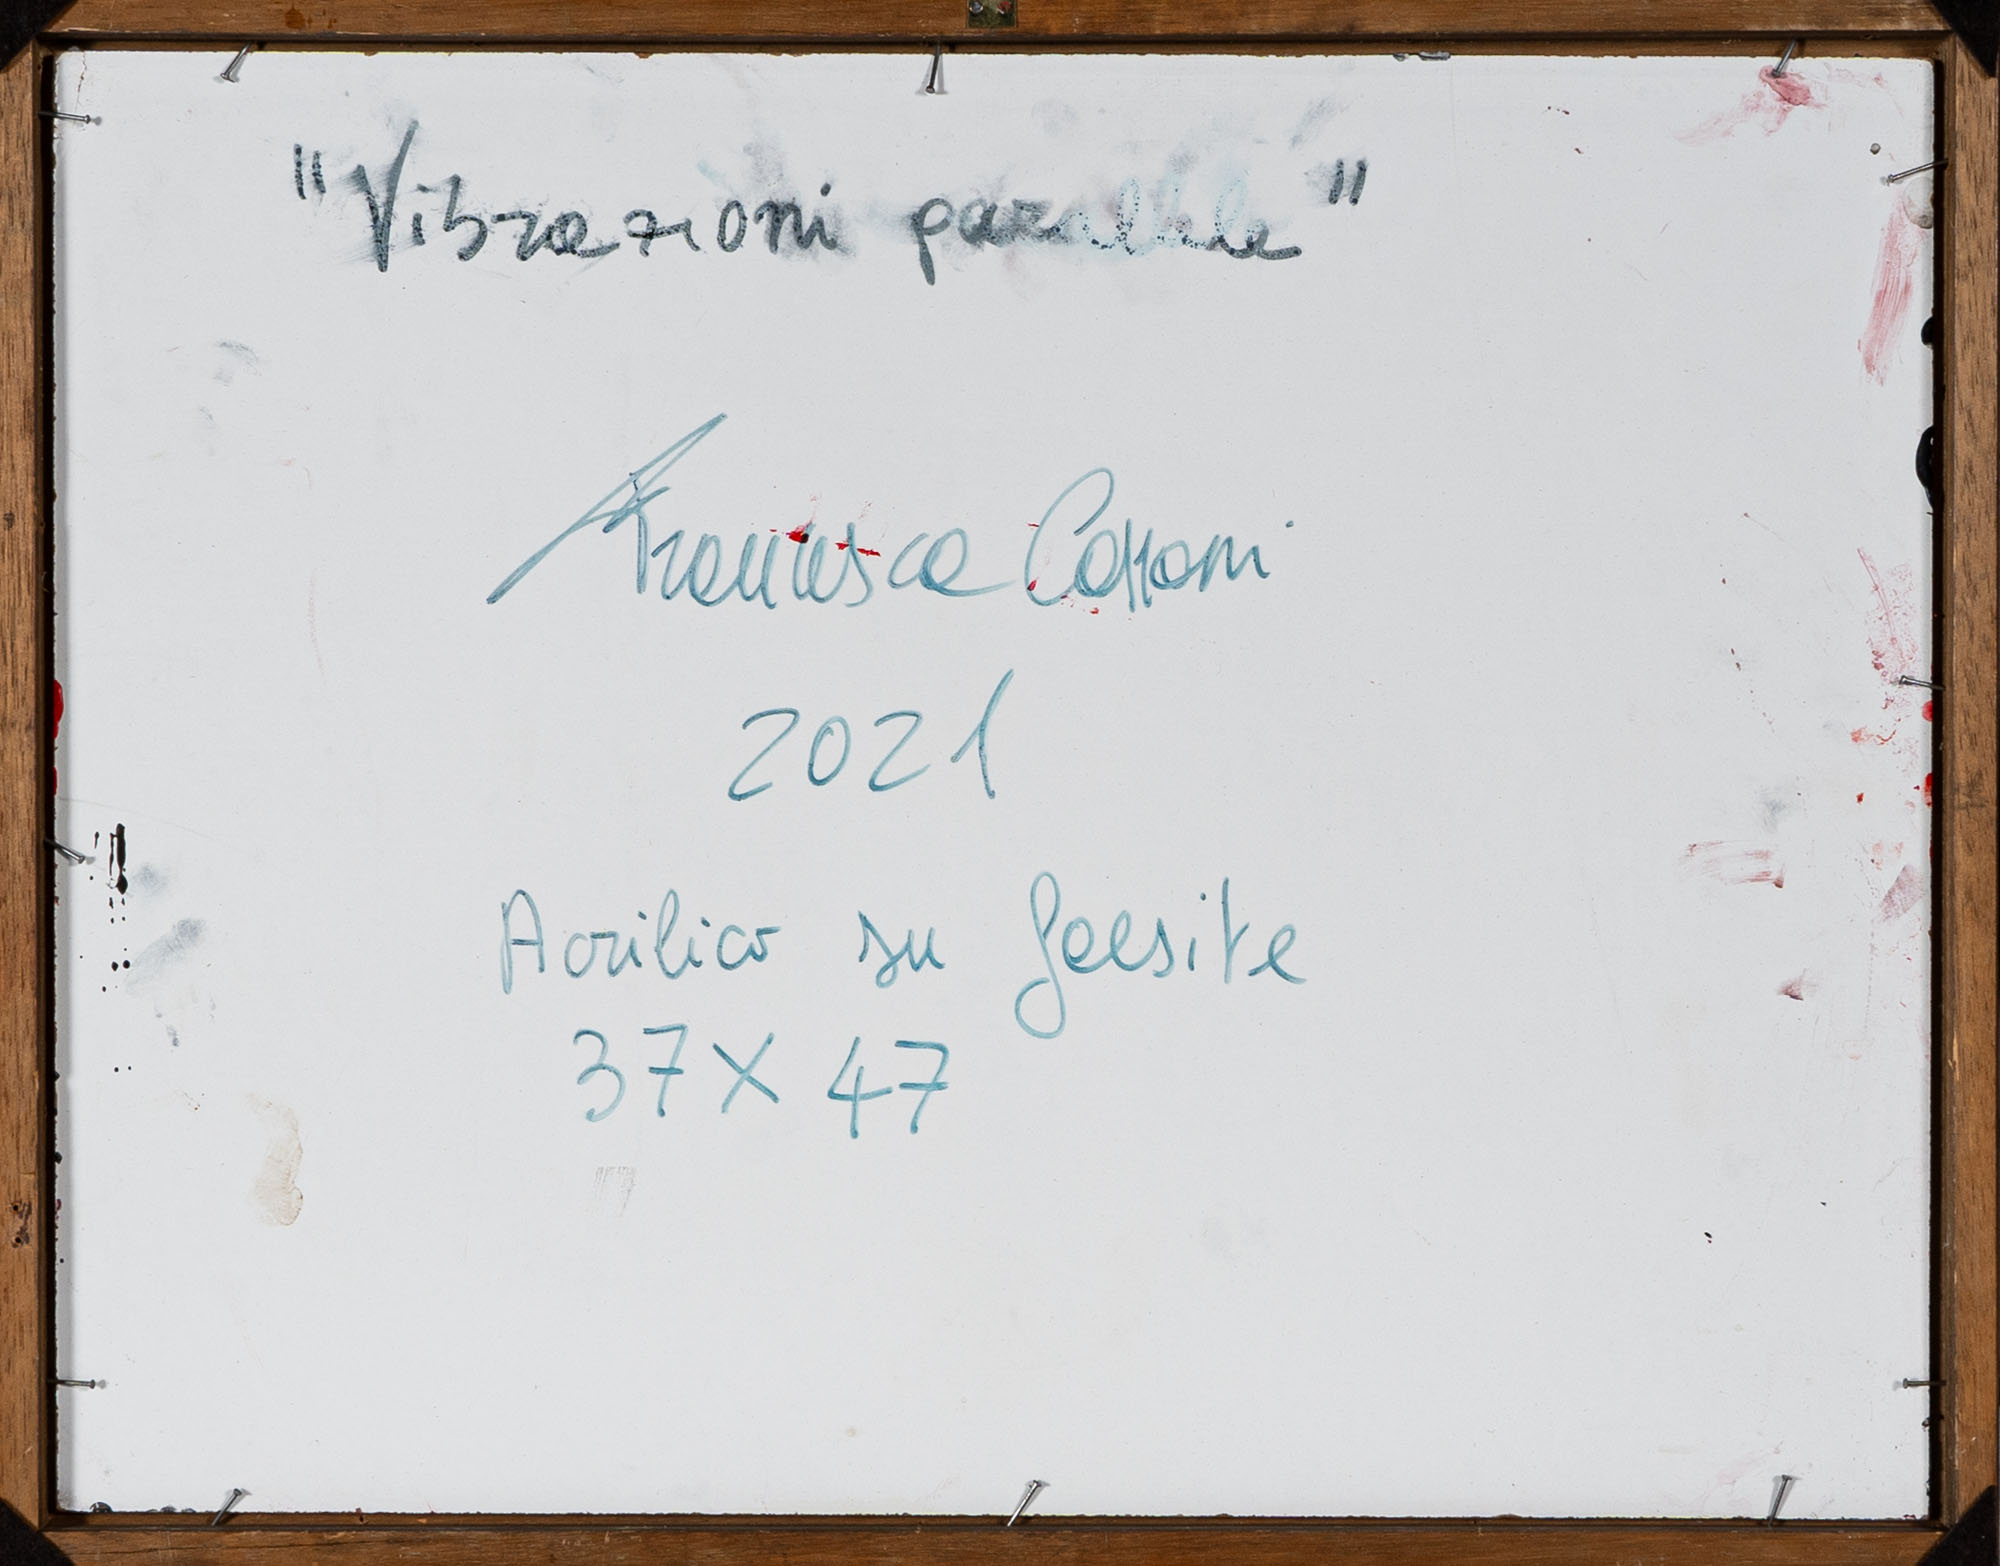 "Vibrazioni parallele"
Francesca
2021
Acrilico su faesite
37 X 47